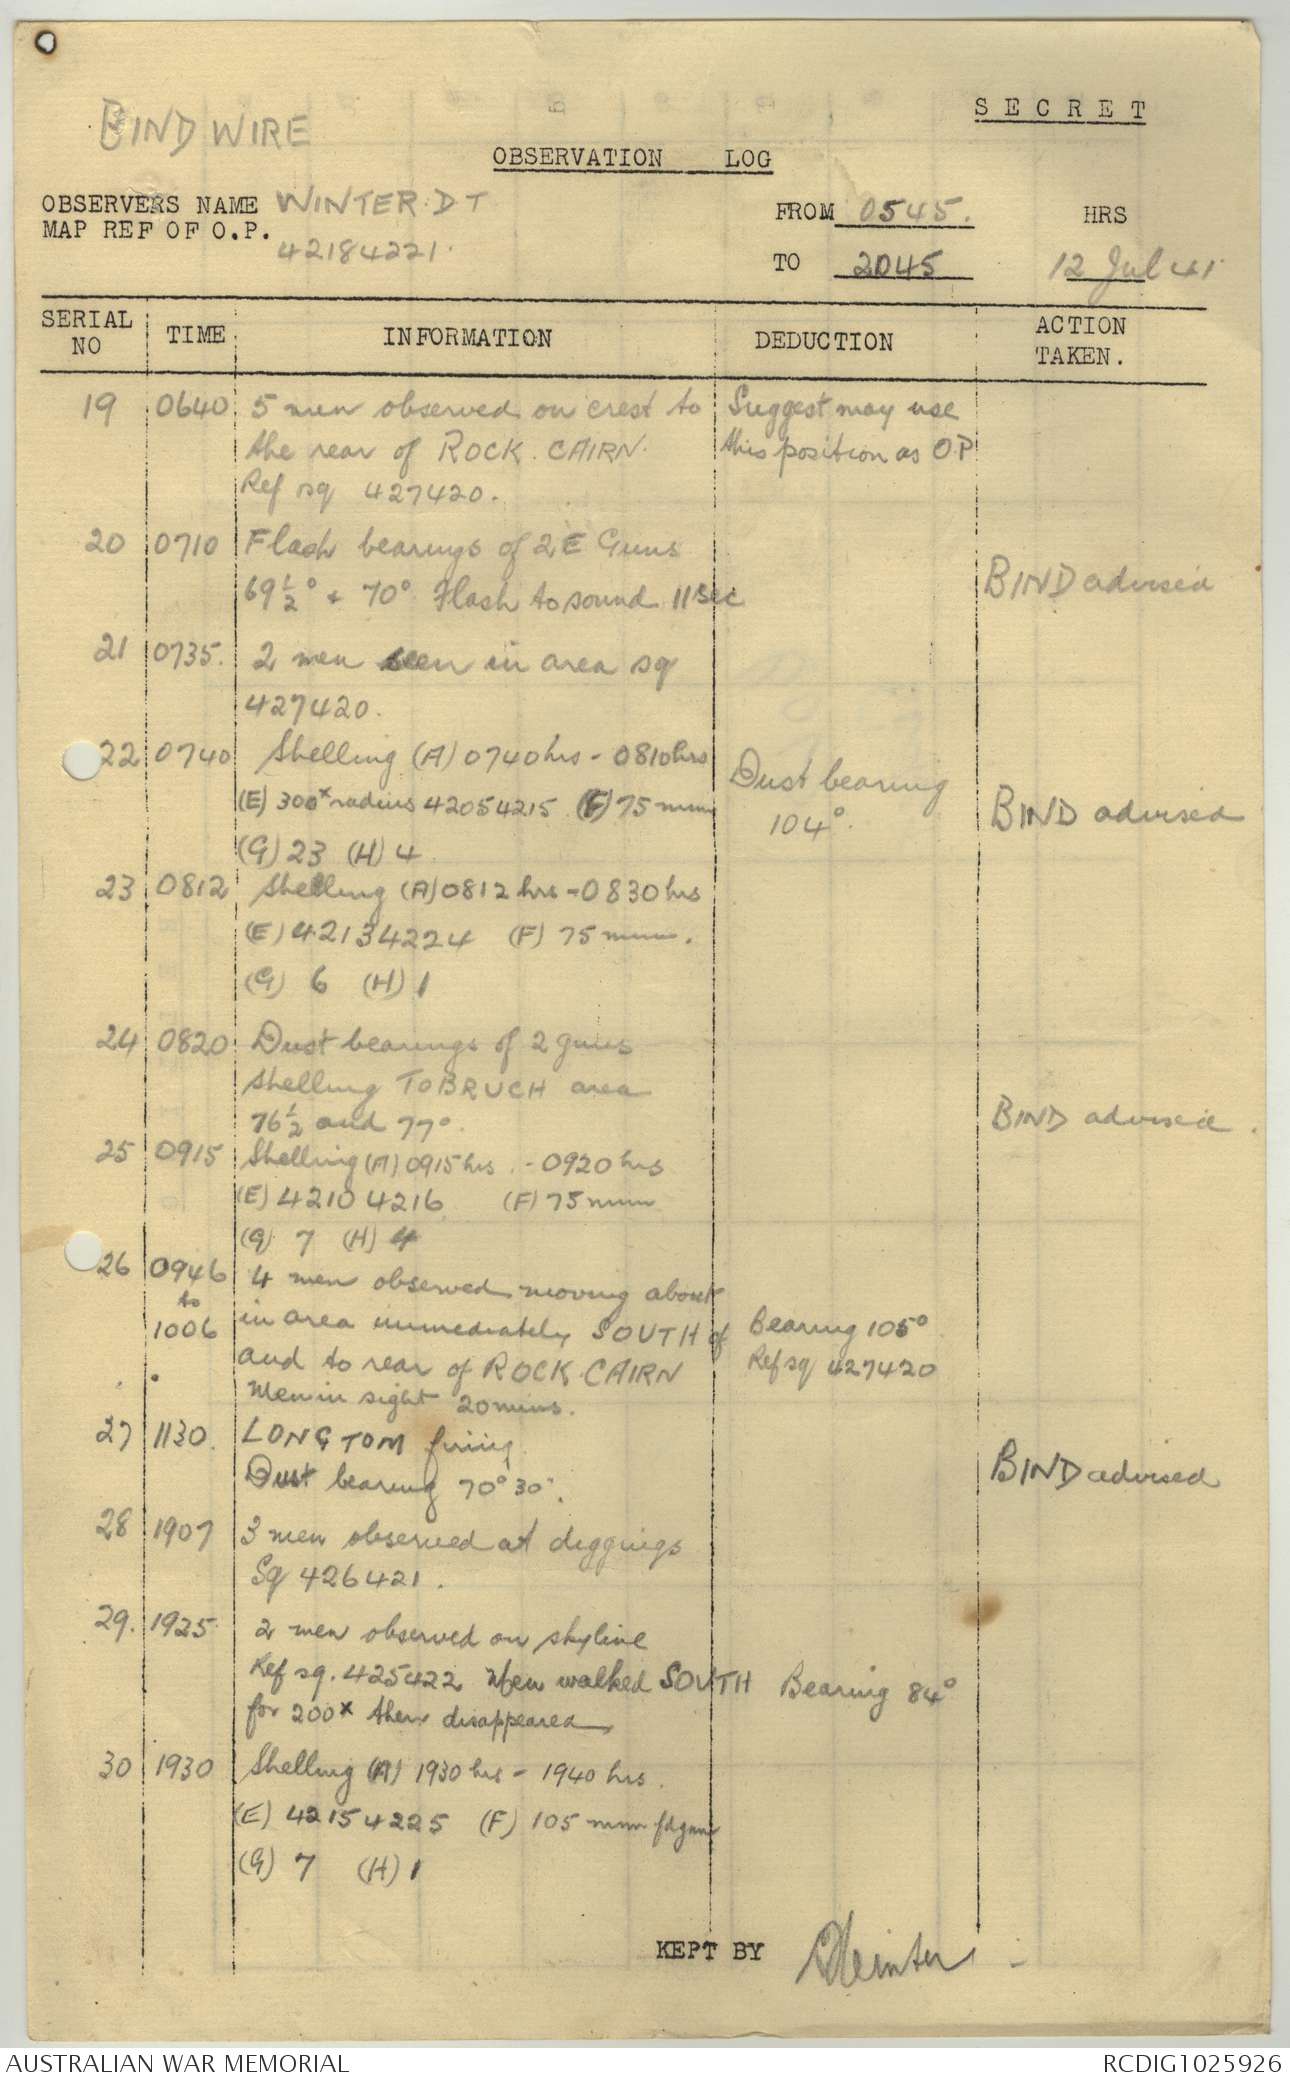 SECRET
BINDWIRE
OBSERVATION LOG
OBSERVERS NAME WINTER. D T
FROM 0545. HRS
MAP REF OF O.P. 42184221.
TO 2045 12 Jul 41
SERIAL NO TIME INFORMATION DEDUCTION ACTION TAKEN.
19 0640 5 men observed on crest to Suggest may use
the rear of ROCK. CAIRN. this position as O.P
Ref sq 427420.
20 0710 Flash bearings of 2 E Guns
69½° + 70° Flash to sound 11 sec BIND advised
21 0735. 2 men seen in area sq
427420.
22 0740 Shelling (A) 0740 hrs - 0810 hrs Dust bearing
(E) 300x radius 42054215 (F) 75 mm 104°. BIND advised
(G) 23 (H) 4
23 0812 Shelling (A) 0812 hrs - 0830 hrs
(E) 42134224 (F) 75 mm.
(G) 6 (H) 1
24 0820 Dust bearings of 2 guns
shelling TOBRUCH area
76½ and 77°. BIND advised.
25 0915 Shelling (A) 0915 hrs. - 0920 hrs
(E) 42104216 (F) 75 mm
(G) 7 (H) 4
26 0946 4 men observed moving about
to
1006 in area immediately SOUTH of Bearing 105°
and to rear of ROCK. CAIRN Ref sq 427420
Men in sight 20 mins.
27 1130. LONG TOM firing
Dust bearing 70° 30'. BIND advised
28 1907 3 men observed at diggings
Sq 426421.
29. 1925 2 men observed on skyline
Ref sq. 425422 Men walked SOUTH Bearing 84°
for 200x then disappeared
30 1930 Shelling (A) 1930 hrs - 1940 hrs.
(E) 42154225 (F) 105 mm fd gun
(G) 7 (H) 1
KEPT BY DWinter
AUSTRALIAN WAR MEMORIAL RCDIG1025926